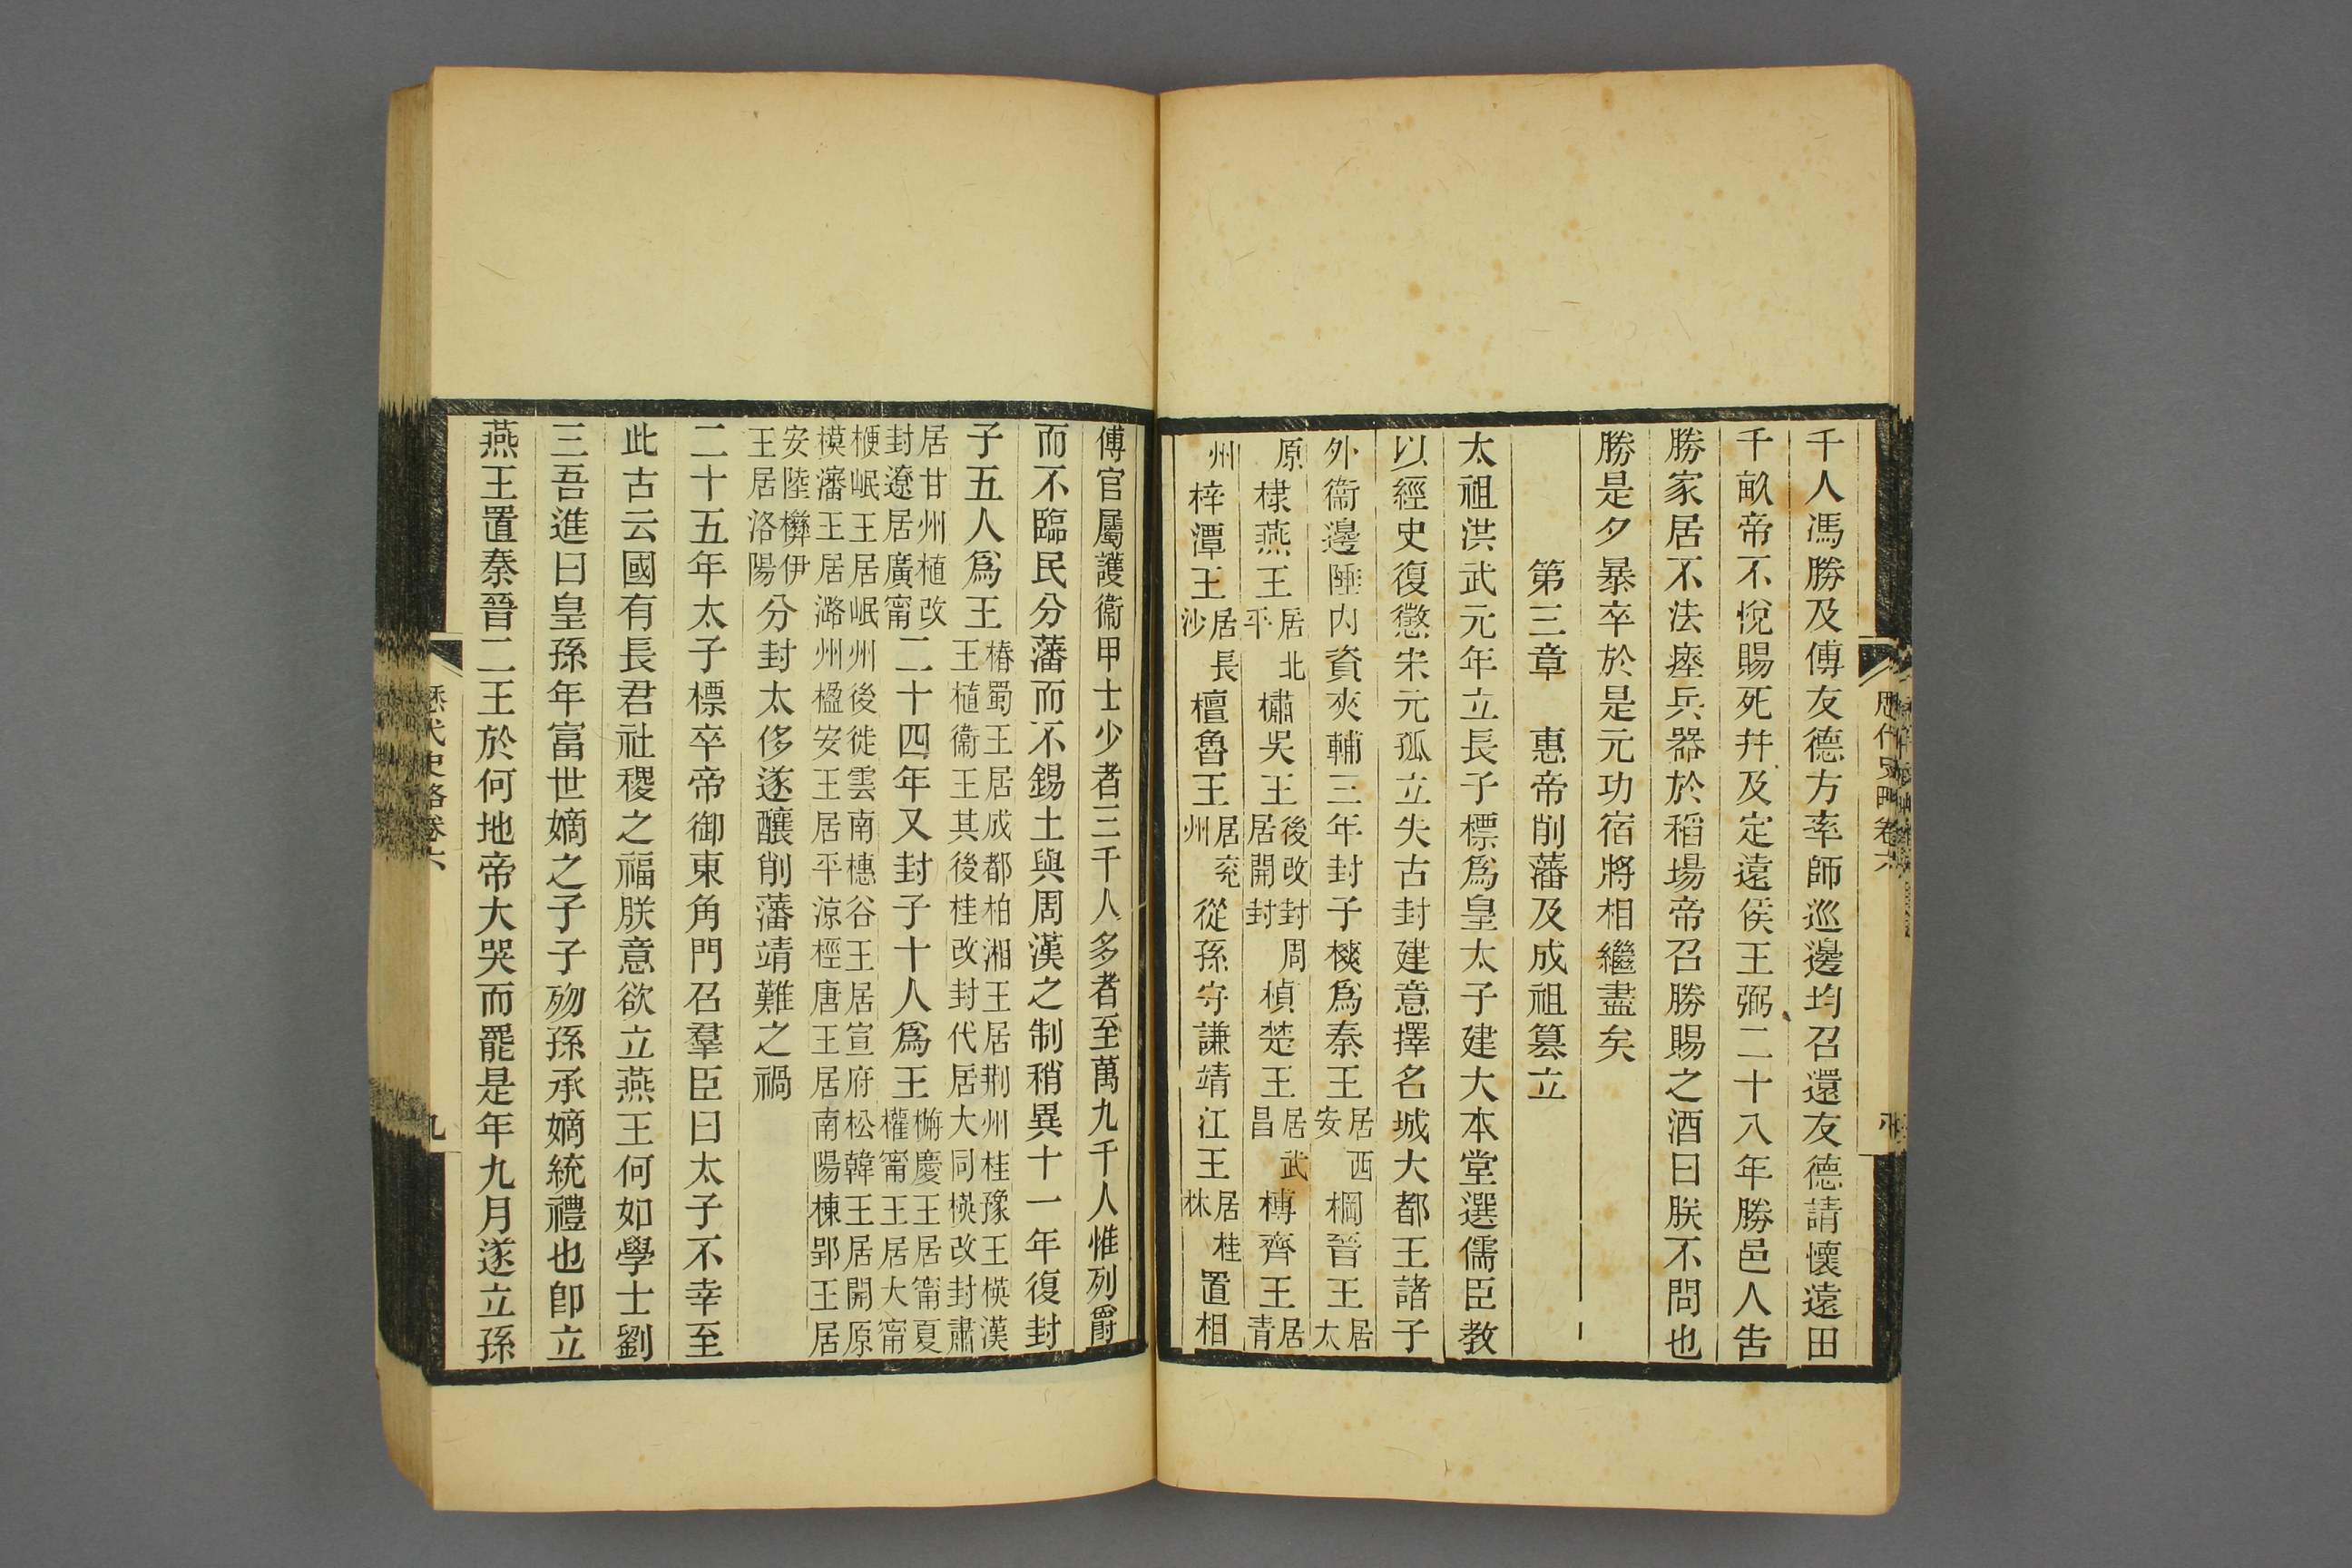 歷代史略卷六 八
千人馮勝及傅友德方率師巡邊均召還友德請懷遠田
千畝帝不悅賜死幷及定遠侯王弼二十八年勝邑人告
勝家居不法瘞兵器於稻場帝召勝賜之酒曰朕不問也
勝是夕暴卒於是元功宿將相繼盡矣
第三章 惠帝削藩及成祖篡立
太祖洪武元年立長子標爲皇太子建大本堂選儒臣教
以經史復懲宋元孤立失古封建意擇名城大都王諸子
外衞邊陲內資夾輔三年封子樉爲秦王居西安棡晉王居太
原棣燕王居北平橚吳王後改封周居開封楨楚王居武昌榑齊王居青
州梓潭王居長沙檀魯王居兗州從孫守謙靖江王居桂林置相
傅官屬護衞甲士少者三千人多者至萬九千人惟列爵
而不臨民分藩而不錫土與周漢之制稍異十一年復封
子五人爲王椿蜀王居成都柏湘王居荆州桂豫王楧漢王植衞王其後桂改封代居大同楧改封肅
居甘州植改封遼居廣甯二十四年又封子十人爲王㮵慶王居甯夏權甯王居大甯
楩岷王居岷州後徙雲南橞谷王居宣府松韓王居開原模瀋王居潞州楹安王居平涼桱唐王居南陽棟郢王居
安陸㰘伊王居洛陽分封太侈遂釀削藩靖難之禍
二十五年太子標卒帝御東角門召羣臣曰太子不幸至
此古云國有長君社稷之福朕意欲立燕王何如學士劉
三吾進曰皇孫年富世嫡之子子歾孫承嫡統禮也卽立
燕王置秦晉二王於何地帝大哭而罷是年九月遂立孫
歷代史略卷六 九